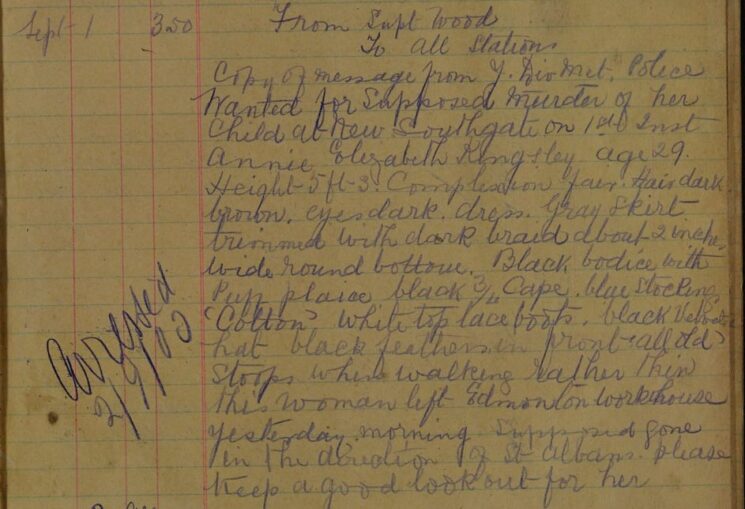 Sept 1 3.50 From Supt Wood
To all Stations
Copy of message from Y. Div Met. Police
Wanted for Supposed Murder of her
Child at New Southgate on 1st Inst
Annie Elizabeth Kingsley age 29.
Height 5 ft 3. Complexion fair. Hair dark
brown. eyes dark. dress. Gray Skirt
trimmed with dark braid about 2 inches
wide round bottom. Black bodice with
black 3/4 Cape. blue Stocking
"Cotton" white top lace boots. black Velvet
hat black feathers in front "all old"
Stoops when walking rather thin
this woman left Edmonton workhouse
yesterday morning Supposed gone
in the direction of St Albans. please
keep a good look out for her
Arrested
2/9/00